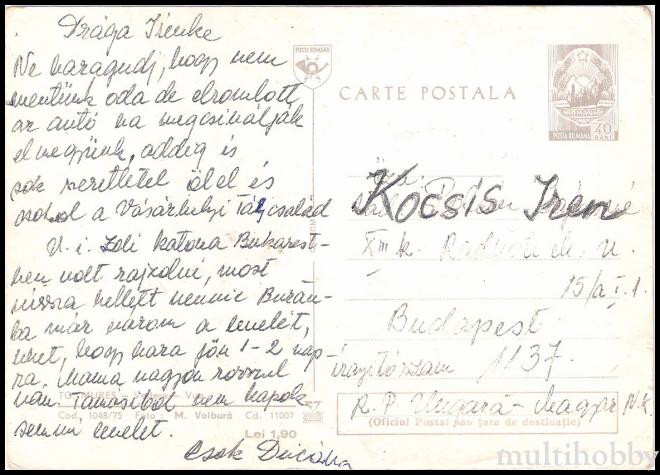 Drága Irenke
Ne haragudj, hogy nem
mentünk oda de elromlott
az autó ha megcsinálják
elmegyünk, addig is
sok szeretettel ölel és
csókol a Vásárhelyi Tálcsalád
U. i. Zoli katona Bukarest-
ben volt rajzolni, most
vissza kellett mennie
ba már várom a levelét,
lehet, hogy haza jön 1-2 nap-
ra. Mama nagyon rosszul
van. Tamáséktól nem kapok
semmi levelet.
Csók
POSTA ROMANA
CARTE POSTALA
POSTA ROMANA 40 BANI
Kocsis Iren
XIII k. Radnóti M. u.
15/a I. 1.
Budapest
irányítószám 1137.
R. P. Ungară - Magyar N.k.
(Oficiul Postal sau țara de destinație)
Cod. 1048/75 Foto: M. Volbură Cd. 11007
Lei 1,90
multihobby